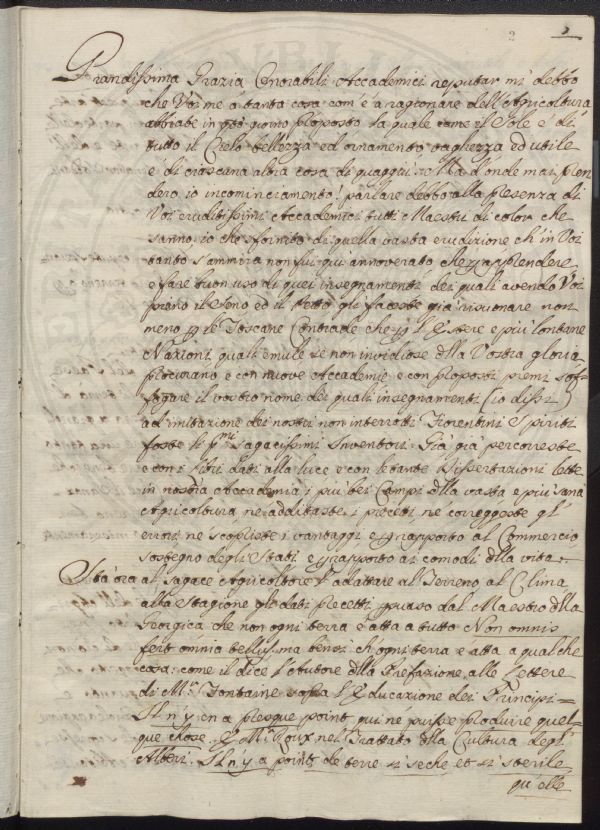 2
Grandissima Grazia Onorabili Accademici reputar mi debbo
che Voi me a tanta cosa com'è a ragionare dell'Agricoltura
abbiate in qto giorno proposto la quale come il Sole è di
tutto il Cielo bellezza ed ornamento vaghezza ed utile
è di ciascuna altra cosa di quaggiù: Ma d'onde mai pren
derò io incominciamento! parlare debbo alla presenza di
Voi eruditissimi Accademici tutti Maestri di color che
sanno, io che sfornito di quella vasta erudizione ch'in Voi
tanto s'ammira non fui qui annoverato che p apprendere
e fare buon uso di quei insegnamenti dei quali avendo Voi
pieno il seno ed il petto gli faceste già risuonare non
meno p le Toscane Contrade che p l'Estere e più lontane
Nazioni quali emule se non invidiose dlla Vostra gloria
procurano e con nuove Accademie e con proposti premi
il vostro nome dei quali insegnamenti (io dissi)
ad imitazione dei nostri non interrotti Fiorentini Spiriti
foste li Pmi Sagacissimi Inventori. Già già percorreste
e con i libri dati alla luce e con le tante Dissertazioni lette
in nostra Accademia i più bei Campi dlla vasta e più sana
Agricoltura, ne additaste i precetti, ne correggeste gl'
errori ne scopriste i vantaggi e p rapporto al Commercio
sostegno degli Stati e p rapporto ai comodi dlla vita.
Sta ora al sagace Agricoltore l'adattare al Terreno al Clima
alla Stagione gli dati precetti, psuaso dal Maestro dlla
Georgica che non ogni terra è atta a tutto Non omnis
fert omnia tellus, ma bensì ch'ogni terra è atta a qualche
cosa: come il dice l'Autore dlla Prefazione alle Lettere
di Mr. Fontaine sopra l'Educazione dei Principi =
Il n'y en a presque point qui ne puisse produire quel-
que chose. E Mr. Roux nel Trattato dlla Cultura degl'
Alberi. Il n'y a point de terre si seche, et si sterile
qu'elle